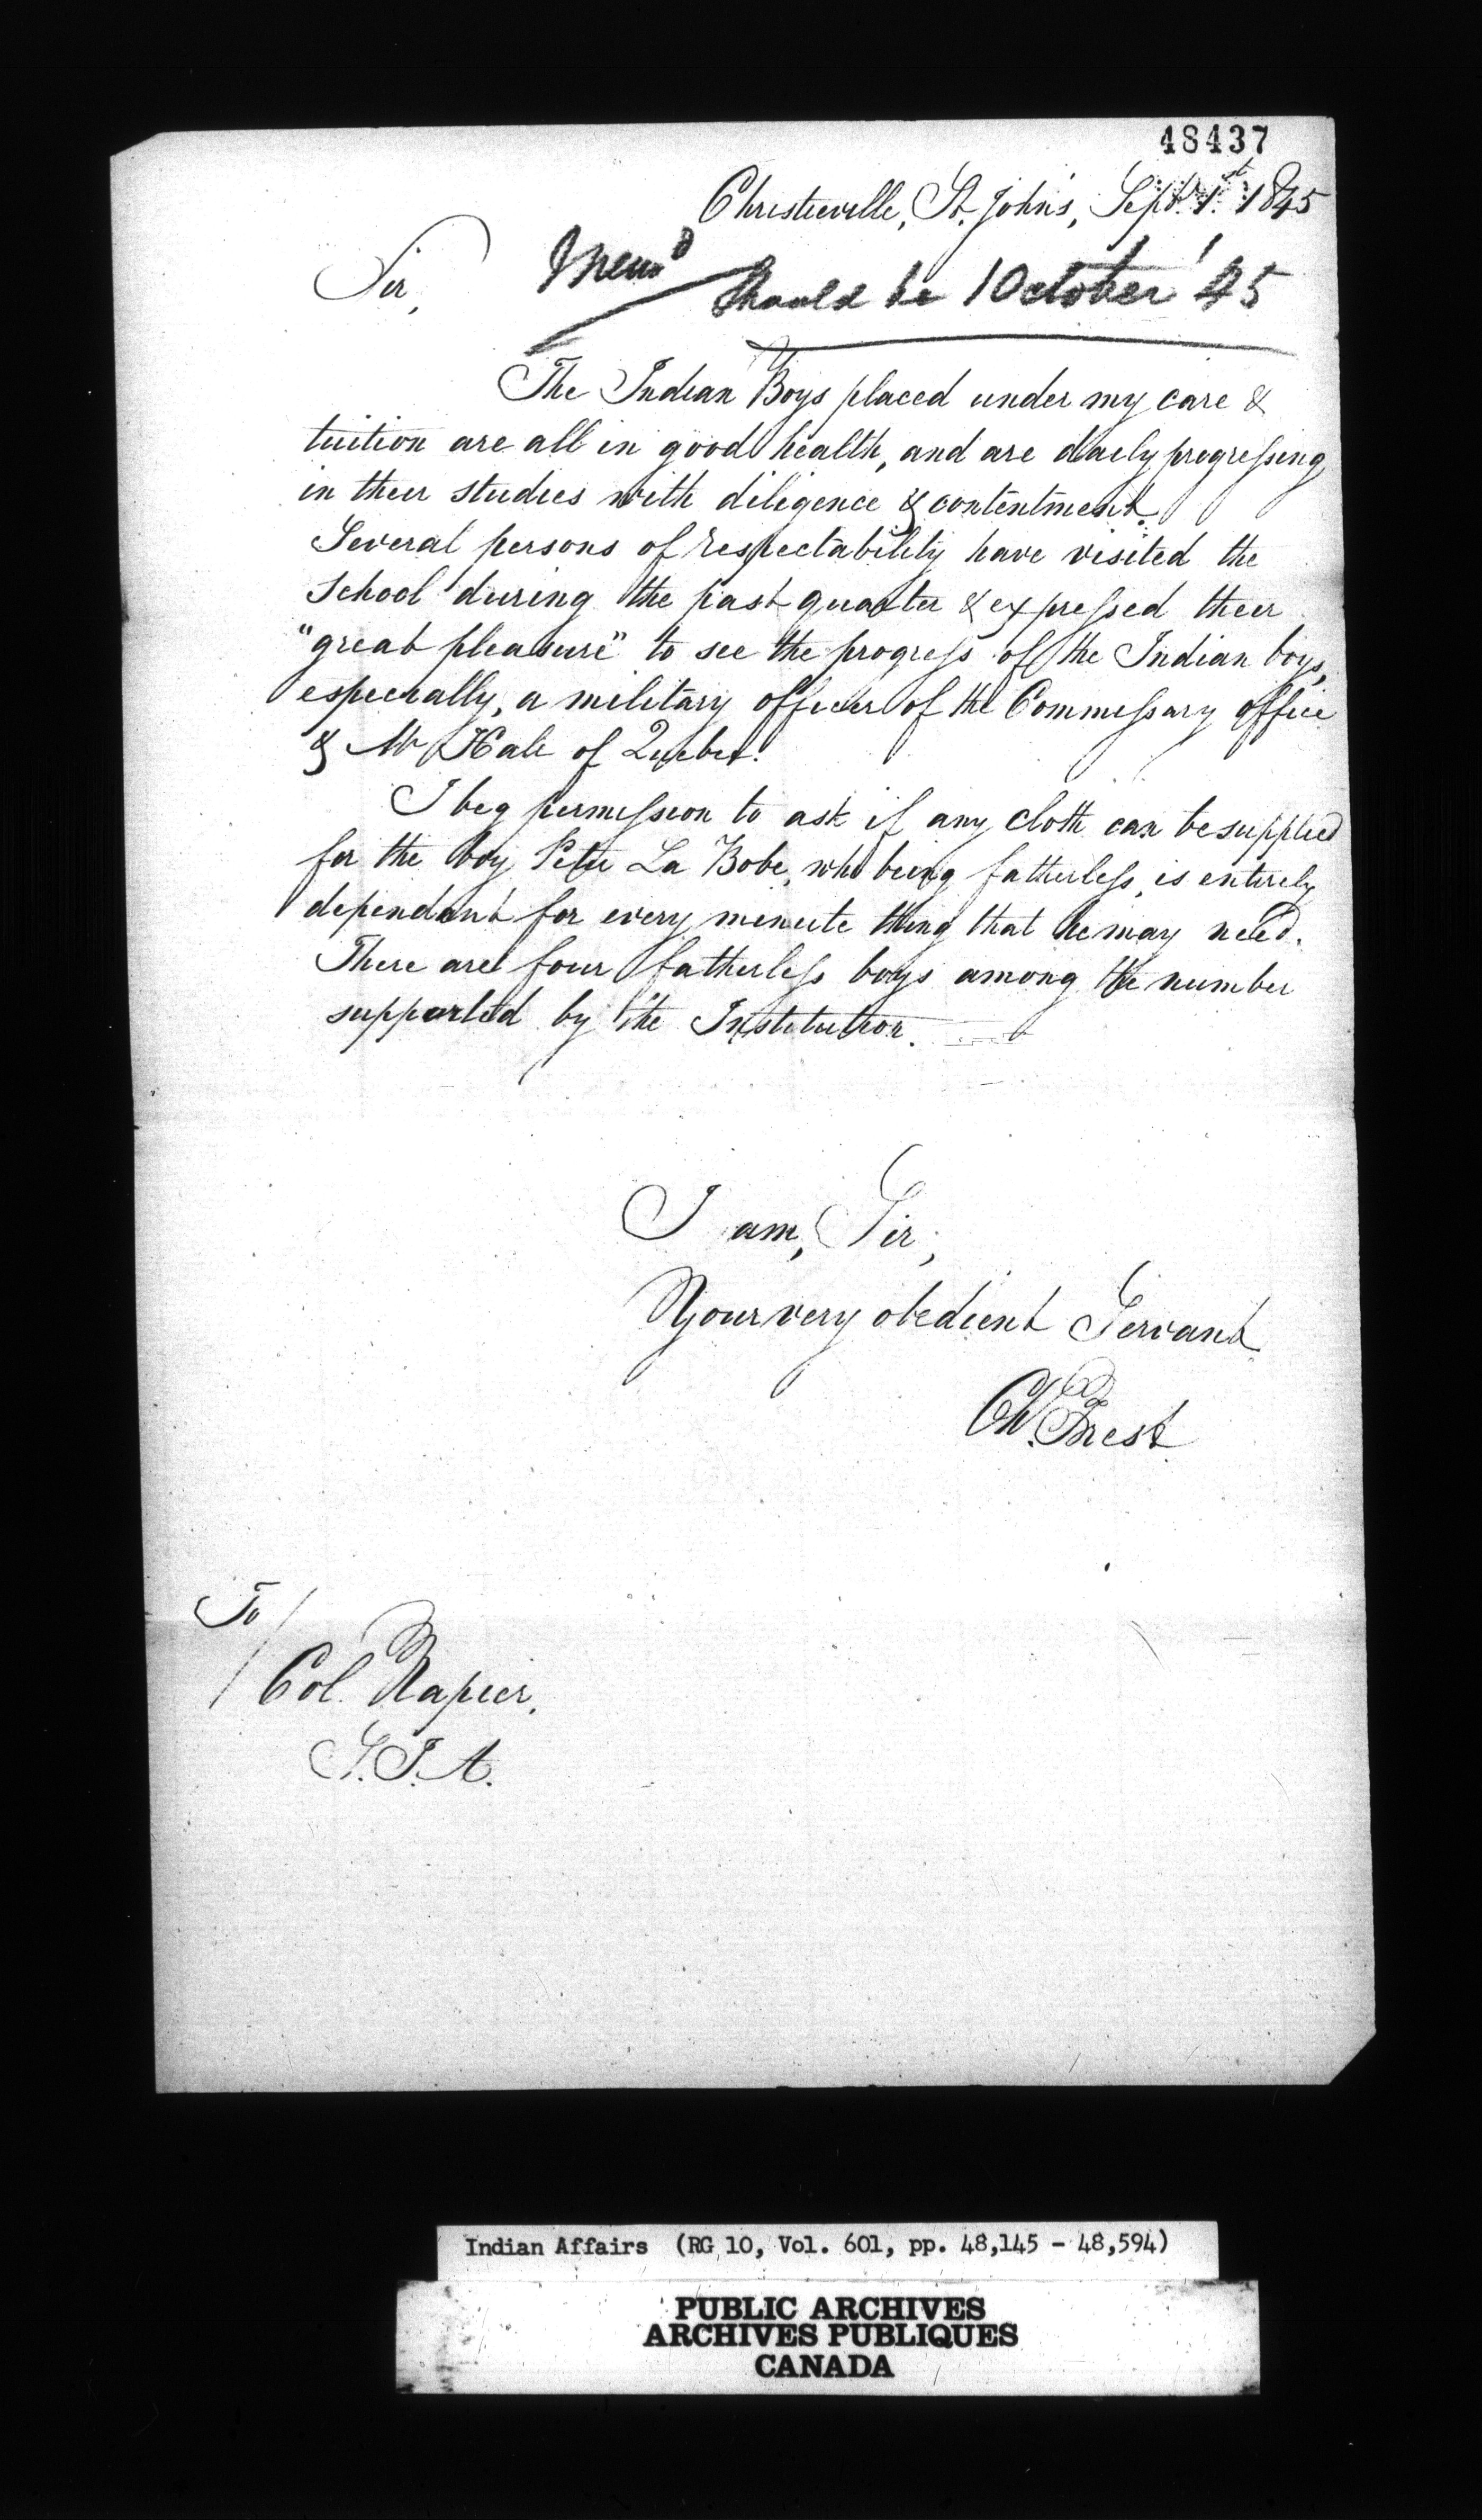 48437
Christieville, St. John's, Sept. 1st 1845
Sir,
Memo
should be 1 October '45
The Indian Boys placed under my care &
tuition are all in good health, and are daily progressing
in their studies with diligence & contentment.
Several persons of respectability have visited the
School during the past quarter & expressed their
"great pleasure" to see the progress of the Indian boys,
especially, a military officer of the Commissary office
& Mr Hale of Quebec.
I beg permission to ask if any cloth can be supplied
for the boy Peter La Bobe, who being fatherless, is entirely
dependant for every minute thing that he may need.
There are four fatherless boys among the number
supported by the Institution.
I am, Sir,
Your very obedient Servant
Ch. Frest
To
Col. Napier.
S.I.A.
Indian Affairs (RG 10, Vol. 601, pp. 48,145 - 48,594)
PUBLIC ARCHIVES
ARCHIVES PUBLIQUES
CANADA